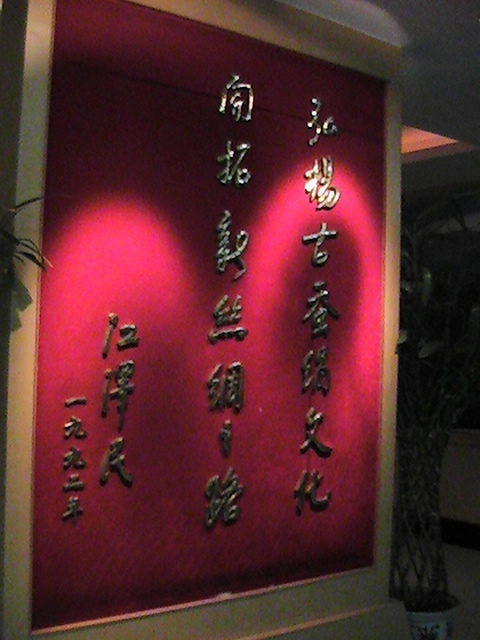 弘揚古蚕絹文化
開拓新絲綢之路
江澤民
一九九二年